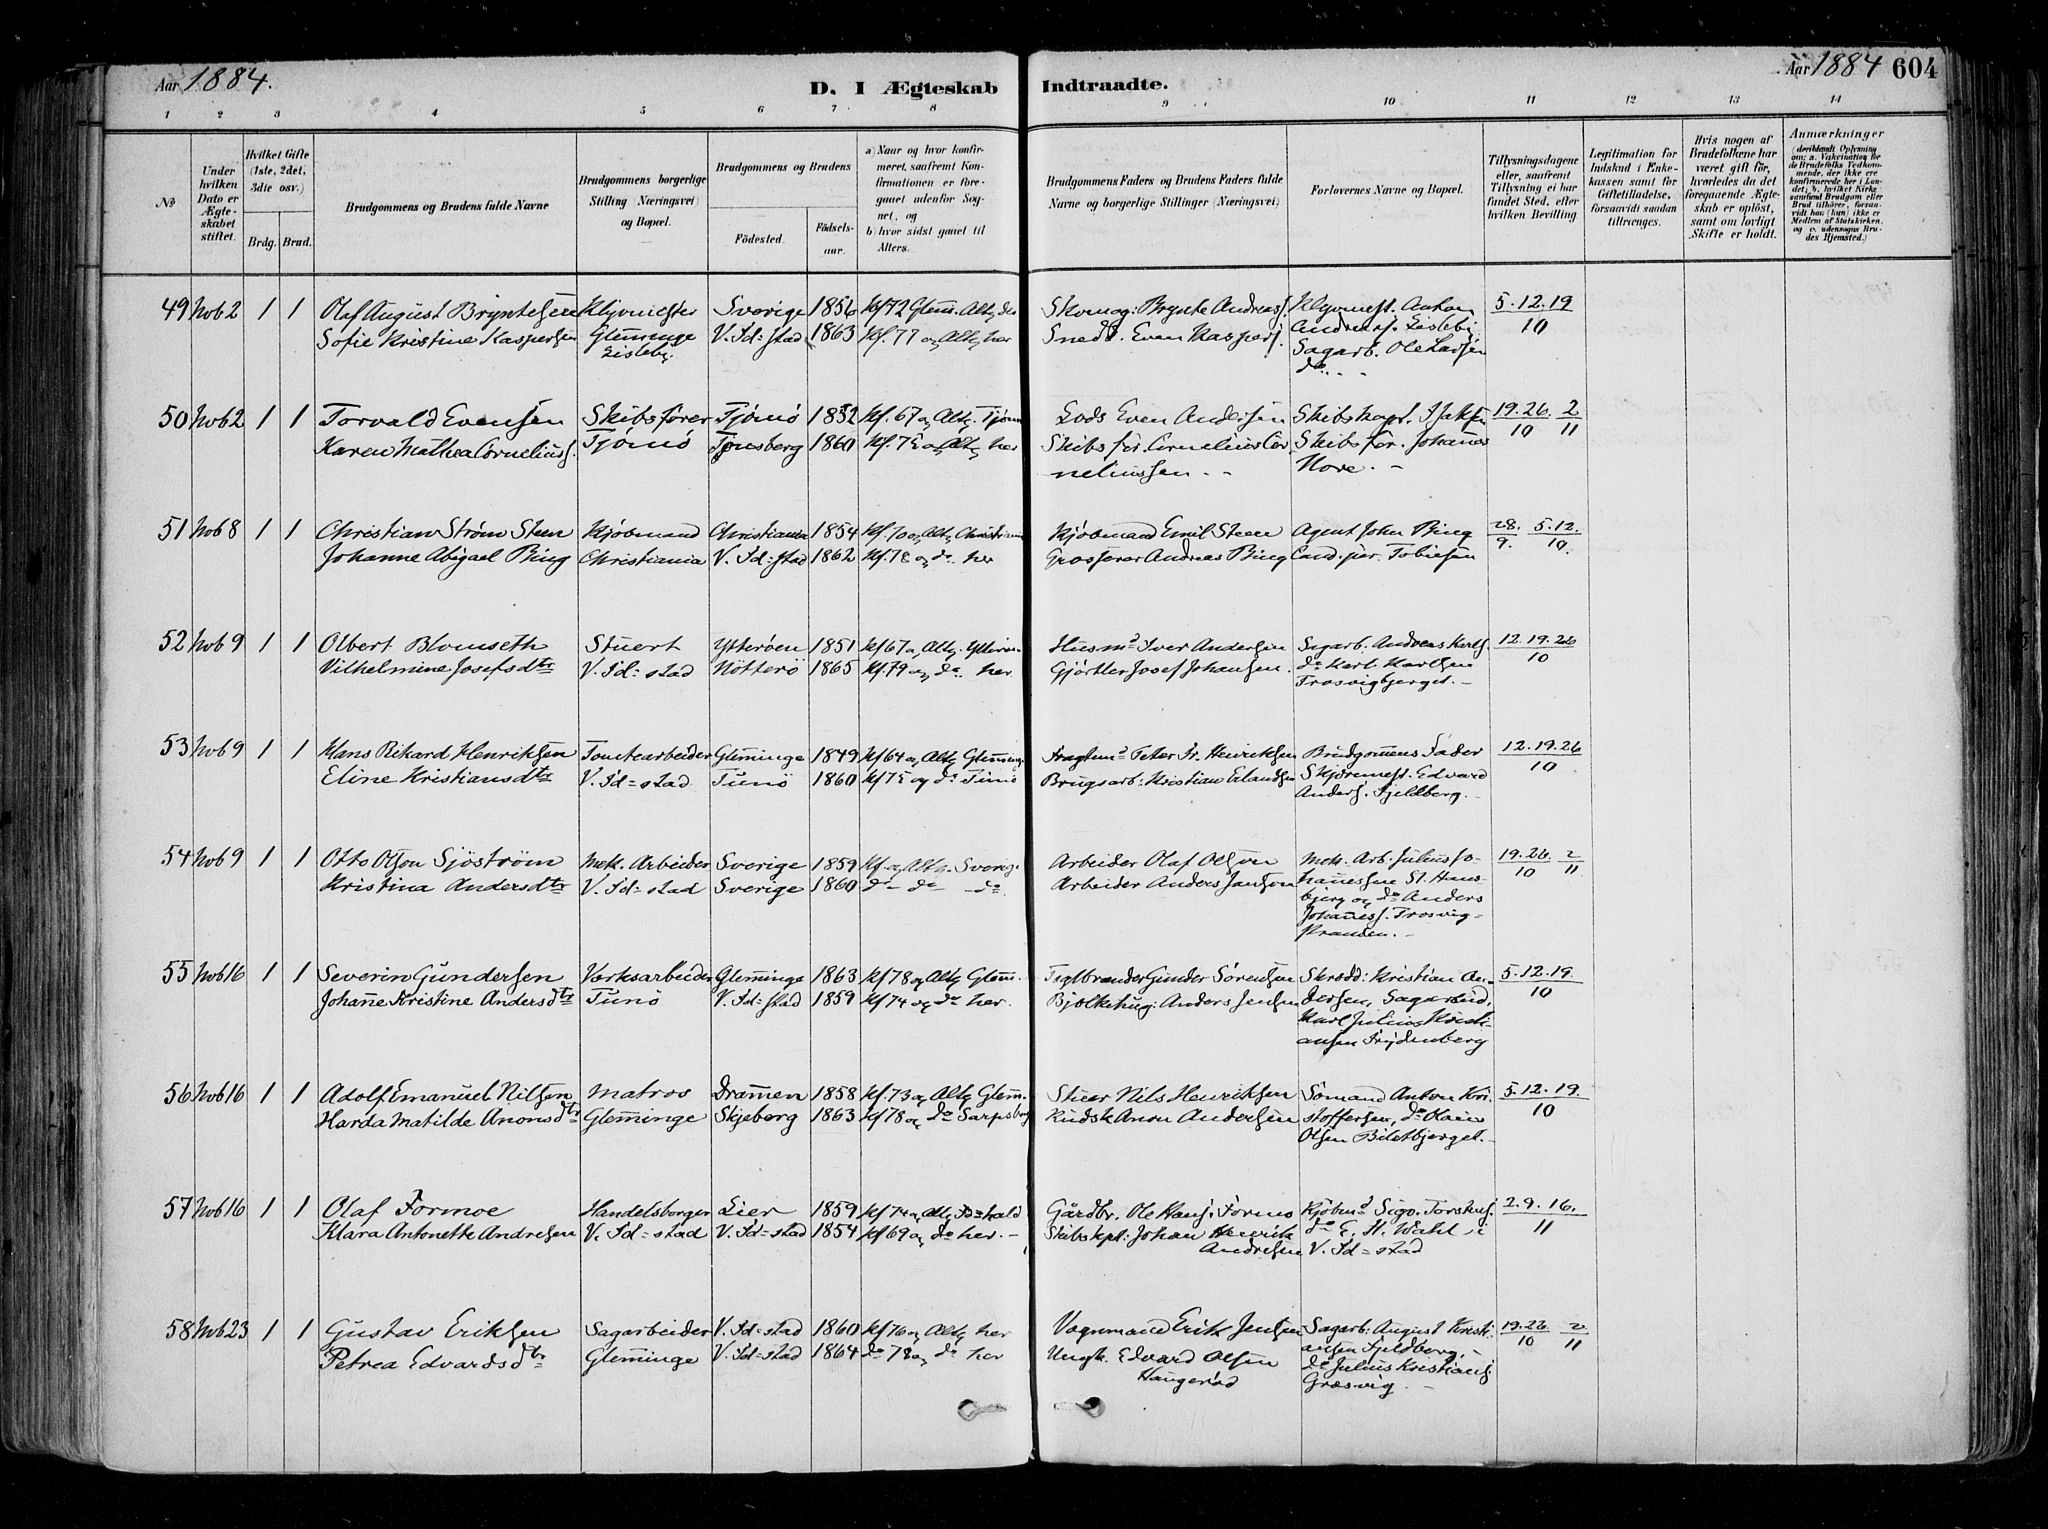 Aar 1884.
D. I Ægteskab Indtraadte.
Aar 1884 604
1 2 3 4 5 6 7 8 9 10 11 12 13 14
No
Under hvilken Dato er Ægteskabet stiftet.
Hvilket Gifte (1ste, 2det, 3die osv.)
Brdg. Brud.
Brudgommens og Brudens fulde Navne
Brudgommens borgerlige Stilling (Næringsvei) og Bopæl.
Brudgommens og Brudens
Fødested. Fødsels-aar.
a) Naar og hvor konfirmeret, saafremt Konfirmationen er foregaaet udenfor Sognet, og
b) hvor sidst gaaet til Alters.
Brudgommens Faders og Brudens Faders fulde Navne og borgerlige Stillinger (Næringsvei)
Forlovernes Navne og Bopæl.
Tillysningsdagene eller, saafremt Tillysning ei har fundet Sted, efter hvilken Bevilling.
Legitimation for Indskud i Enkekassen samt for Giftetilladelse, forsaavidt saadan tiltrænges.
Hvis nogen af Brudefolkene har været gift før, hvorledes da det foregaaende Ægteskab er opløst, samt om lovligt Skifte er holdt.
Anmærkninger (deriblandt Oplysning om: a. Vakcination for de Brudefolks Vedkommende, der ikke ere konfirmerede her i Landet; b. hvilket Kirkesamfund Brudgom eller Brud tilhører, forsaavidt han (hun) ikke er Medlem af Statskirken, og c. udensogns Brudes Hjemsted.)
49 Nov 2 1 1 Olaf August Bryntesen Klyvmester Sverige 1856 kf 72 Glem. Altg. do Skomag: Brynte Andreass. Klyvmest. Anton 5.12.19
Sofie Kristine Kaspersen Glemminge V. Fd=stad 1863 kf. 77 og Altg her Snedk. Even Kaspers. Andreass. Lisleby 10
Lisleby. Sagarb. Ole Larsen
do. - -
50 Nov 2 1 1 Torvald Evensen Skibsfører Tjømø 1852 kf. 67 og Altg. Tjømø Lods Even Andersen Skibskapt. Isaksen 19.26. 2
Karen Mathea Cornelius. Tjømø Tønsberg 1860 kf. 75 og Altg her Skibsfør. Cornelius Cor Skibsfør. Johannes 10 11
neliussen - - Hove. -
51 Nov 8 1 1 Christian Strøm Steen Kjøbmand Christiania 1854 kf. 70 og Altg Christiania Kjøbmand Emil Steen Agent John Bing 28. 5.12.
Johanne Abigael Bing Christiania V. Fd=stad 1862 kf. 78 og do. her Grosserer Andreas Bing Cand. jur. Tobiesen 9. 10.
52 Nov 9 1 1 Olbert Blomseth Stuert Ytterøen 1851 kf 67 og Altg. Ytterøen Husmd Iver Andersen Sagarb. Andreas Karls. 12.19.26
Vilhelmine Josefsdtr V. Fd=stad Nøtterø 1865 kf. 79 og do. her. Gjørtler Josef Johansen. do Karl Karlsen 10
Trosvigbjerget. -
53 Nov 9 1 1 Hans Rikard Henriksen Tomtearbeider Glemminge 1849 kf 64 og Altg Glemminge Fragtmd Peter Fr. Henriksen Brudgommens Fader 12.19.26
Eline Kristiansdtr V. Fd=stad Tunø 1860 kf 75 og do Tunø Brugsarb: Kristian Erlandsen Skjæremest. Edvard 10
Anders. Fjeldberg. -
54 Nov 9 1 1 Otto Olson Sjöström Mek. Arbeider Sverige 1859 kf og Altg. Sverige Arbeider Olaf Olsson Mek. Arb. Julius Jo- 19.26. 2
Kristina Andersdtr V. Fd=stad Sverige 1860 do do -do. Arbeider Anders Janson hannessen St. Hans- 10 11
bjerg og do Anders
Johaness. Trosvig-
stranden. -
55 Nov 16 1 1 Severin Gundersen Værksarbeider Glemminge 1863 kf 78 og Altg Glem. Teglbrænder Gunder Sørensen Skrædd: Kristian An- 5.12.19.
Johanne Kristine Andersdtr Tunø V. Fd=stad 1859 kf 74 og do her. Bjelkehug: Anders Jensen dersen, Sagarbeid. 10
Karl Julius Kristi-
ansen Frydenberg
56 Nov 16 1 1 Adolf Emanuel Nilsen Matros Drammen 1858 kf. 73 og Altg Glem. Stuer Nils Henriksen Sømand Anton Kri 5.12.19.
Harda Matilde Anonsdtr Glemminge Skjeberg 1863 kf 78 og do Sarpsborg Kudsk Anon Andersen stoffersen, do Olaus 10
Olsen Biletbjerget.-
57 Nov 16 1 1 Olaf Formoe Handelsborger Lier 1859 kf 74 og Altg Fd=hald Gårdbr. Ole Hans. Formo Kjøbmd Sigv. Torskus. 2.9.16.
Klara Antonette Andresen V. Fd=stad V. Fd=stad 1854 kf 69 og do her. - Skibskpt: Johan Henrik do E. H. Wahl i 11
Andresen V. Fd=stad
58 Nov 23 1 1 Gustav Eriksen Sagarbeider V. Fd=stad 1860 kf 76 og Altg her Vognmand Erik Jensen Sagarb: August Krist- 19.26 2
Petrea Edvardsdtr Glemminge V. Fd=stad 1864 do 78 og do her Ungk. Edvard Olsen iansen Fjeldberg. - 10 11
Haugerød do Julius Kristians.
Græsvig. -